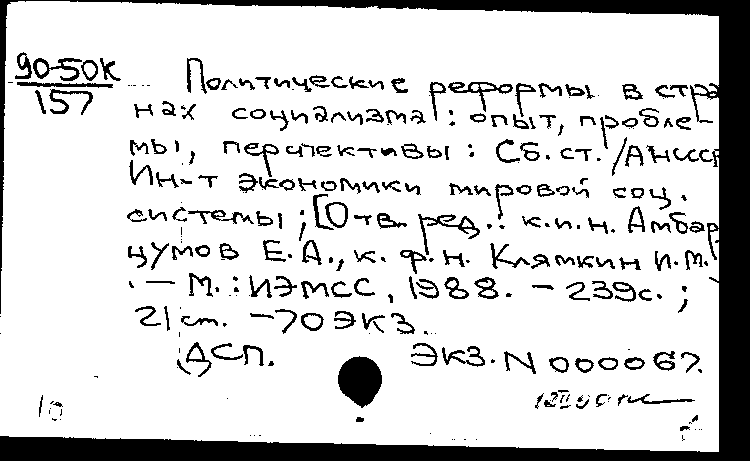 90-50К
157
Политические реформы в стра
нах социализма: опыт, пробле-
мы, перспективы: Сб. ст. /АНСССР
Ин-т экономики мировой соц.
системы; [Отв. ред.: к.и.н. Амбар
цумов Е.А., к.ф.н. Клямкин И.М.
.— М.: ИЭМСС, 1988. – 239с.;
21 см. –70 ЭКЗ.
ДСП. ЭКЗ. N 000067.
10